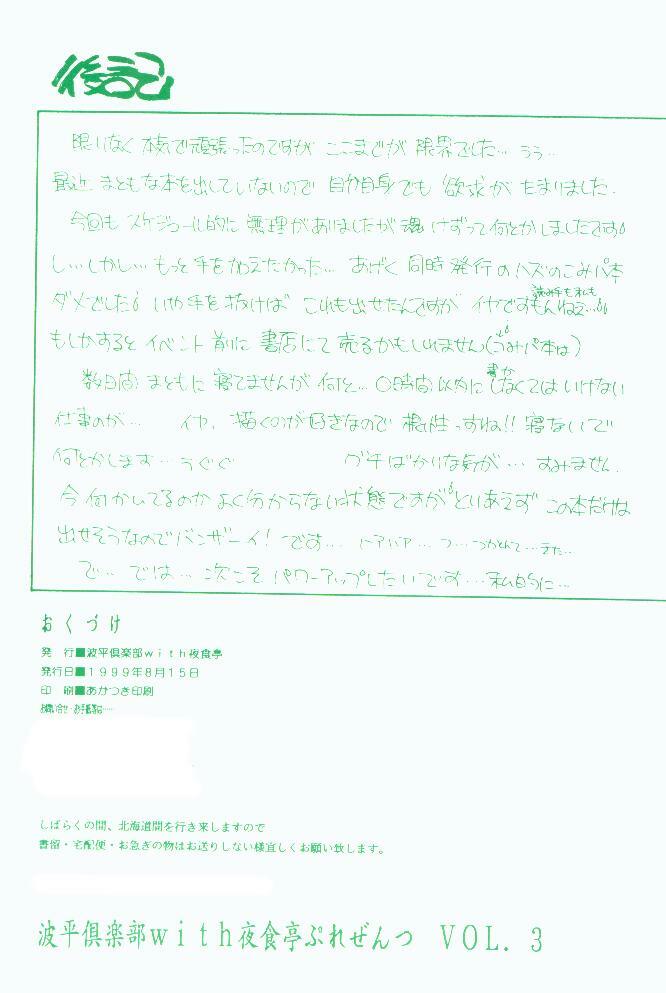 後記
限りなく本気で頑張ったのですが ここまでが 限界でした… うう…
最近 まともな本を出していないので 自分自身でも 欲求が たまりました.
今回も スケジュール的に 無理がありましたが 魂 けずって何とかしましたです
し…しかし… もっと手をかえたかった… あげく 同時 発行の ハズのこみパ本
読み手も私も
ダメでした いや手を抜けば これも出せたんですが イヤですもんねえ…
もしかすると イベント 前に 書店にて 売るかもしれません(うみパ本は)
書か
数日間 まともに 寝てませんが 何と… 〇時間 以内に しなくては いけない
仕事のが… イヤ, 描くのが好きなので 根性っすね!! 寝ないで
何とかします… うぐぐ グチばかりな気が… すみません.
今 何かいてるのか よく分からない状態ですが とりあえず この本だけは
出せそうなのでバンザーイ! です…. つ… つかれて…きた…
で… では… 次こそ パワーアップしたいです… 私的に…
おくづけ
発 行■波平倶楽部ｗｉｔｈ夜食亭
発行日■１９９９年８月１５日
印 刷■あかつき印刷
しばらくの間、北海道間を行き来しますので
書留・宅配便・お急ぎの物はお送りしない様宜しくお願い致します。
波平倶楽部ｗｉｔｈ夜食亭ぷれぜんつ ＶＯＬ．３